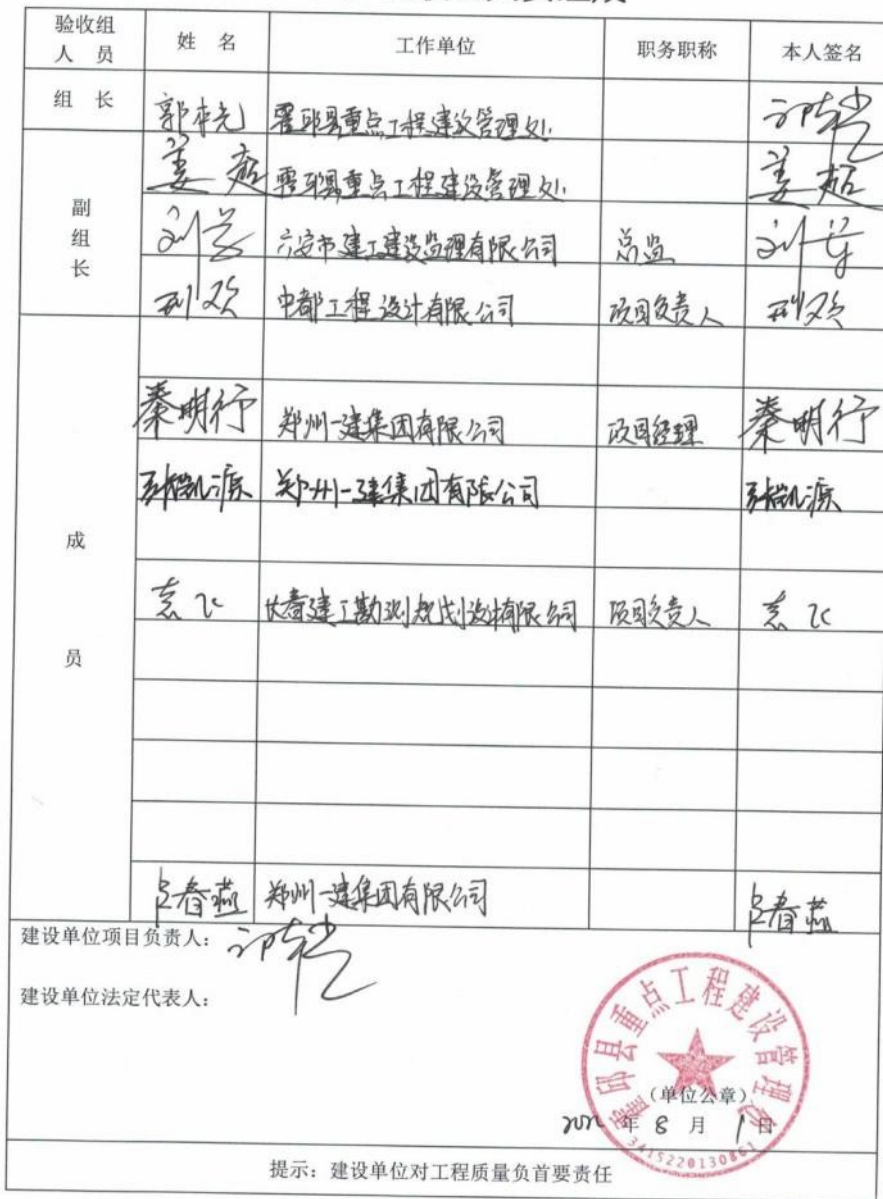 验收组
人 员
姓 名
工作单位
职务职称
本人签名
组 长
郭本光 霍邱县重点工程建设管理处
姜超 霍邱县重点工程建设管理处 姜超
副组长
六安市建工建设监理有限公司 总监
邢欢 中都工程设计有限公司 项目负责人 邢欢
成员
秦明行 郑州一建集团有限公司 项目经理 秦明行
郑州一建集团有限公司
长春建工勘测规划设计有限公司 项目负责人
春燕 郑州一建集团有限公司 春燕
建设单位项目负责人:
建设单位法定代表人:
霍邱县重点工程建设管理处
(单位公章)
年 8 月 1 日
提示:建设单位对工程质量负首要责任